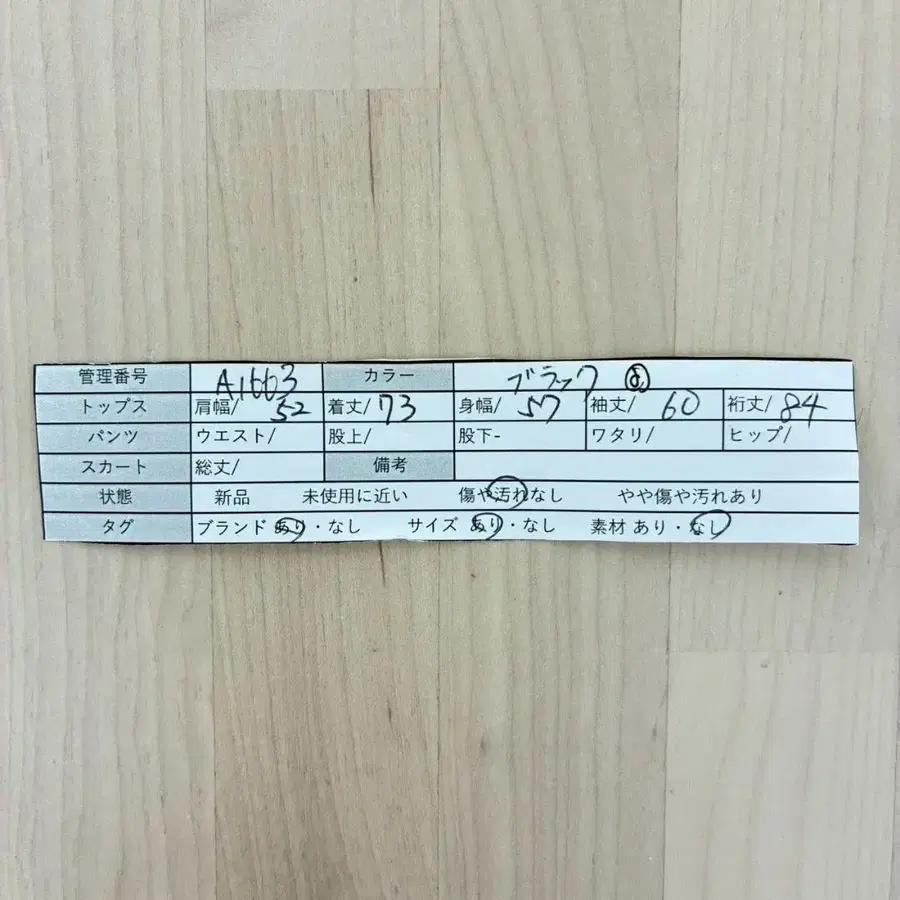 管理番号 A1663 カラー ブラック
トップス 肩幅/ 52 着丈/ 73 身幅/ 57 袖丈/ 60 裄丈/ 84
パンツ ウエスト/ 股上/ 股下- ワタリ/ ヒップ/
スカート 総丈/ 備考
状態 新品 未使用に近い 傷や汚れなし やや傷や汚れあり
タグ ブランド あり・なし サイズ あり・なし 素材 あり・なし